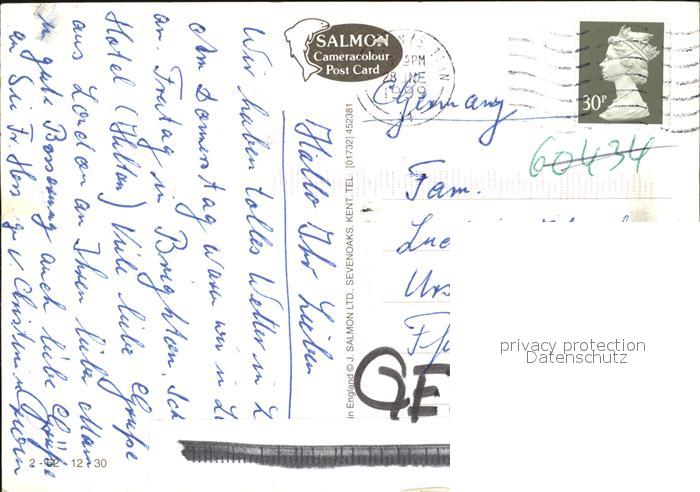 SALMON
Cameracolour
Post Card
PM
JNE
1999
30P
Germany
60434
Fam.
privacy protection
Datenschutz
GE
in England © J. SALMON LTD., SEVENOAKS, KENT. TEL: (01732) 452381
Hallo Ihr Lieben
Wir haben tolles Wetter in
Am Donnerstag waren wir in
an. Freitag in Brighton. Ich
Hotel (Hilton) Viele liebe Grüße
aus London an Ihren lieben Mann
u. gute Besserung auch liebe Grüße
an Sie Fr.
2 - 02 - 12 - 30